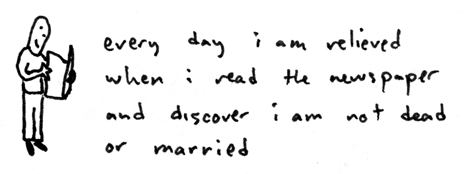 every day i am relieved
when i read the newspaper
and discover i am not dead
or married